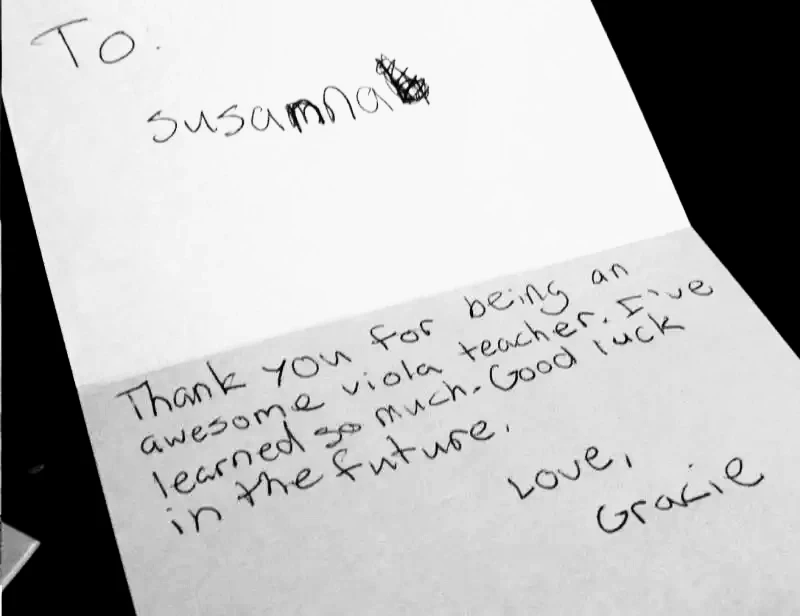 To.
susanna
Thank you for being an
awesome viola teacher. I've
learned so much. Good luck
in the future.
Love,
Gracie